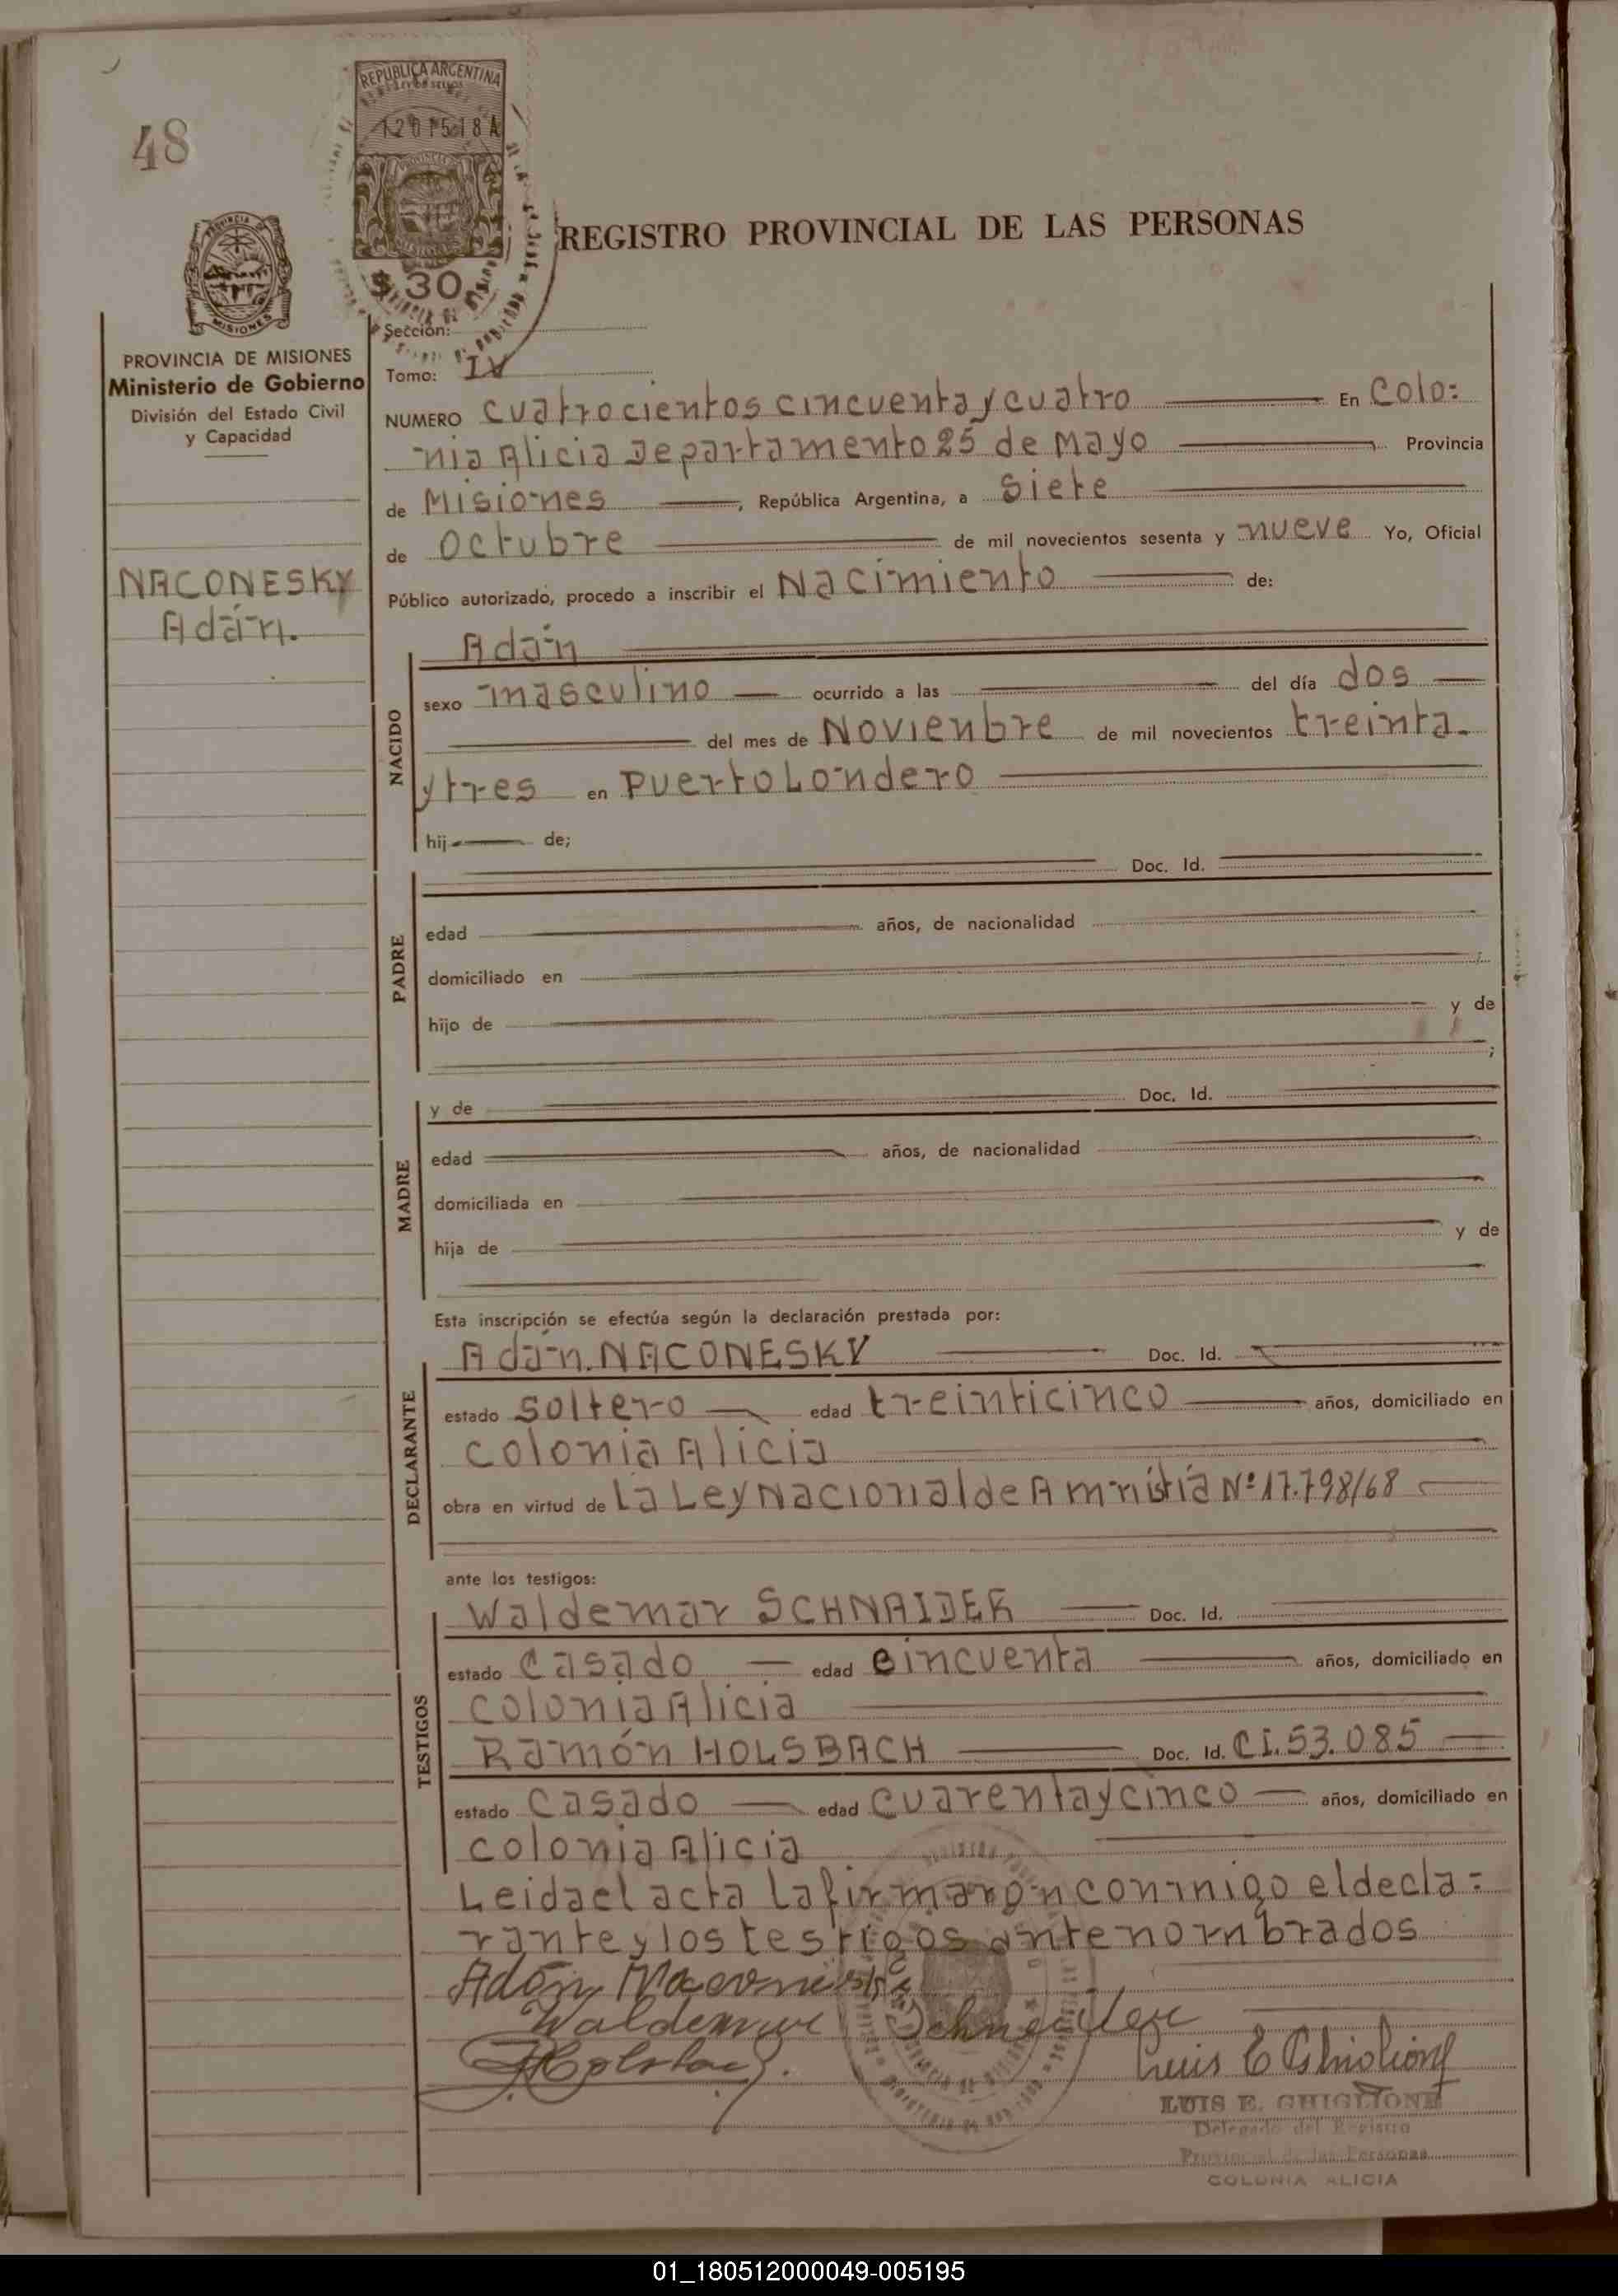 48
REPUBLICA ARGENTINA
PROVINCIA DE
MISIONES
$ 30
REGISTRO PROVINCIAL DE LAS PERSONAS
PROVINCIA DE MISIONES
Ministerio de Gobierno
División del Estado Civil
y Capacidad
NACONESKY
Adán.
Sección:
Tomo: IV
NUMERO cuatrocientos cincuenta y cuatro En Colo=
nia Alicia Departamento 25 de Mayo Provincia
de Misiones, República Argentina, a siete
de octubre de mil novecientos sesenta y nueve Yo, Oficial
Público autorizado, procedo a inscribir el Nacimiento de:
NACIDO
Adán
sexo masculino ocurrido a las del día dos
del mes de Novienbre de mil novecientos treinta
y tres en Puerto Londero
hij de;
PADRE
Doc. Id.
edad años, de nacionalidad
domiciliado en ;
hijo de y de
;
MADRE
y de Doc. Id.
edad años, de nacionalidad
domiciliada en
hija de y de
Esta inscripción se efectúa según la declaración prestada por:
DECLARANTE
Adán. NACONESKY Doc. Id.
estado soltero edad treinticinco años, domiciliado en
colonia Alicia
obra en virtud de la Ley Nacional de Amnistía Nº 17.798/68
ante los testigos:
TESTIGOS
Waldemar SCHNAIDER Doc. Id.
estado casado edad cincuenta años, domiciliado en
colonia Alicia
Ramón HOLSBACH Doc. Id. CI. 53.085
estado casado edad cuarenta y cinco años, domiciliado en
colonia Alicia
Leida el acta la firmaron conmigo el decla=
rante y los testigos antenombrados
Adán
Waldemar Schneider
Luis E Ghiglione
LUIS E. GHIGLIONE
Delegado del Registro
Provincial de las Personas
COLONIA ALICIA
01_180512000049-005195